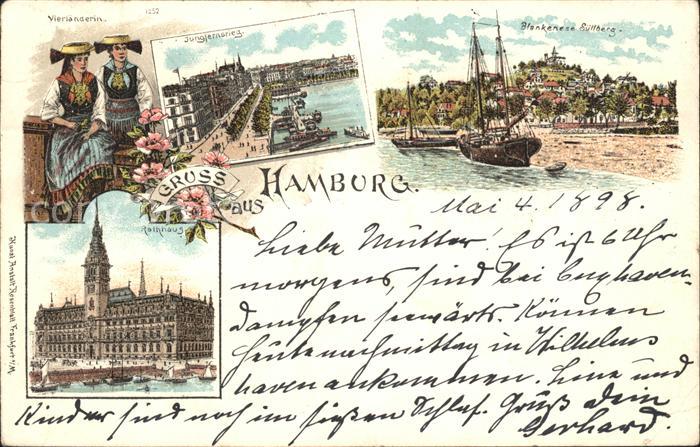 Vierländerin.
1252
Jungfernstieg.
Blankenese Süllberg.
GRUSS
AUS
HAMBURG.
Rathhaus.
Mai 4. 1898.
Liebe Mutter! Es ist 6 Uhr
morgens, sind bei Cuxhaven,
dampfen seewärts. Können
heute nachmittag in Wilhelms
haven ankommen. Line und
Kinder sind noch im süßen Schlaf. Gruß dein
Gerhard.
Kunst Anstalt Rosenblatt, Frankfurt a/M.